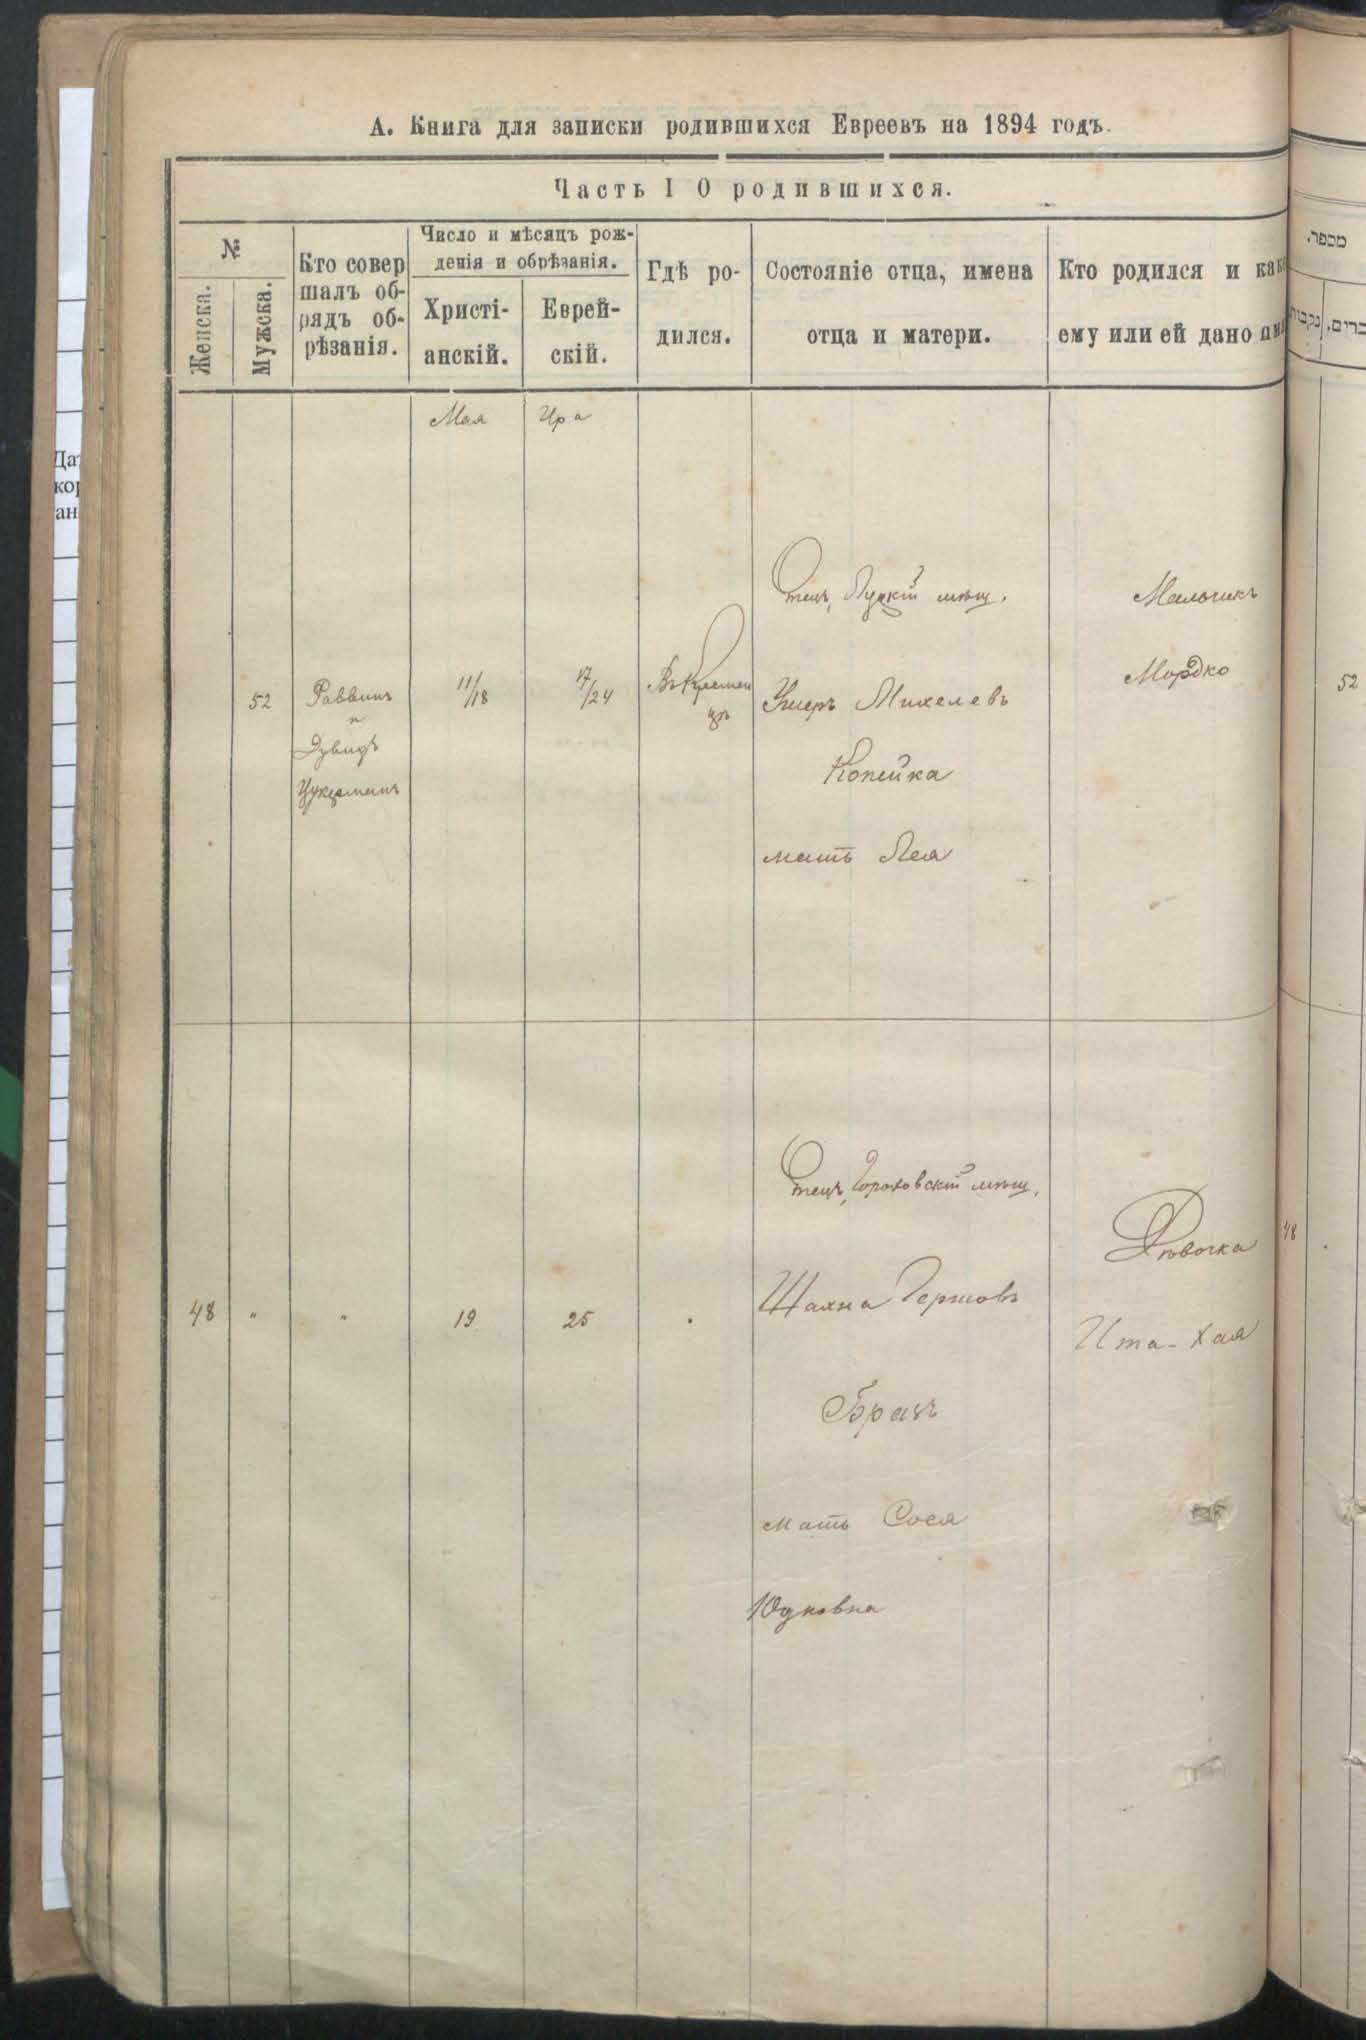 А. Книга для записки родившихся Евреевъ на 1894 годъ.
Часть I О родившихся.
№
Женска.
Мужска.
Кто совер
шалъ об-
рядъ об-
рѣзанія.
Число и мѣсяцъ рож-
денія и обрѣзанія.
Христі-
анскій.
Еврей-
скій.
Гдѣ ро-
дился.
Состояніе отца, имена
отца и матери.
Кто родился и как
ему или ей дано им
Мая
Ира
52
Раввинъ
и
Дувидъ
Цукерманъ
11/18
17/24
Въ Кремен
цѣ
Отецъ, Луцкій мѣщ.
Ушеръ Михелевъ
Копейка
мать Лея
Мальчикъ
Мордко
48
"
"
19
25
Отецъ, Гороховскій мѣщ.
Шахна Гершовъ
Бразъ
мать Сося
Юдковна
Дѣвочка
Ита-Хая
מספר.
נקבות
כרים.
52
48
Дат
кор
ан